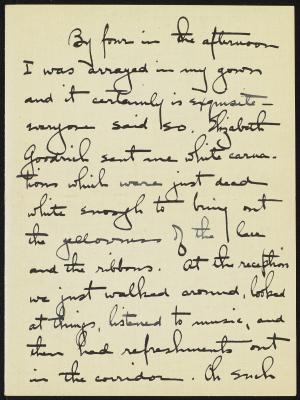 By four in the afternoon
I was arrayed in my gown
and it certainly is exquisite –
everyone said so. Elizabeth
Goodrich sent me white carna-
tions which were just dead
white enough to bring out
the yellowness of the lace
and the ribbons. At the reception
we just walked around, looked
at things, listened to music, and
then had refreshments out
in the corridor. Oh such